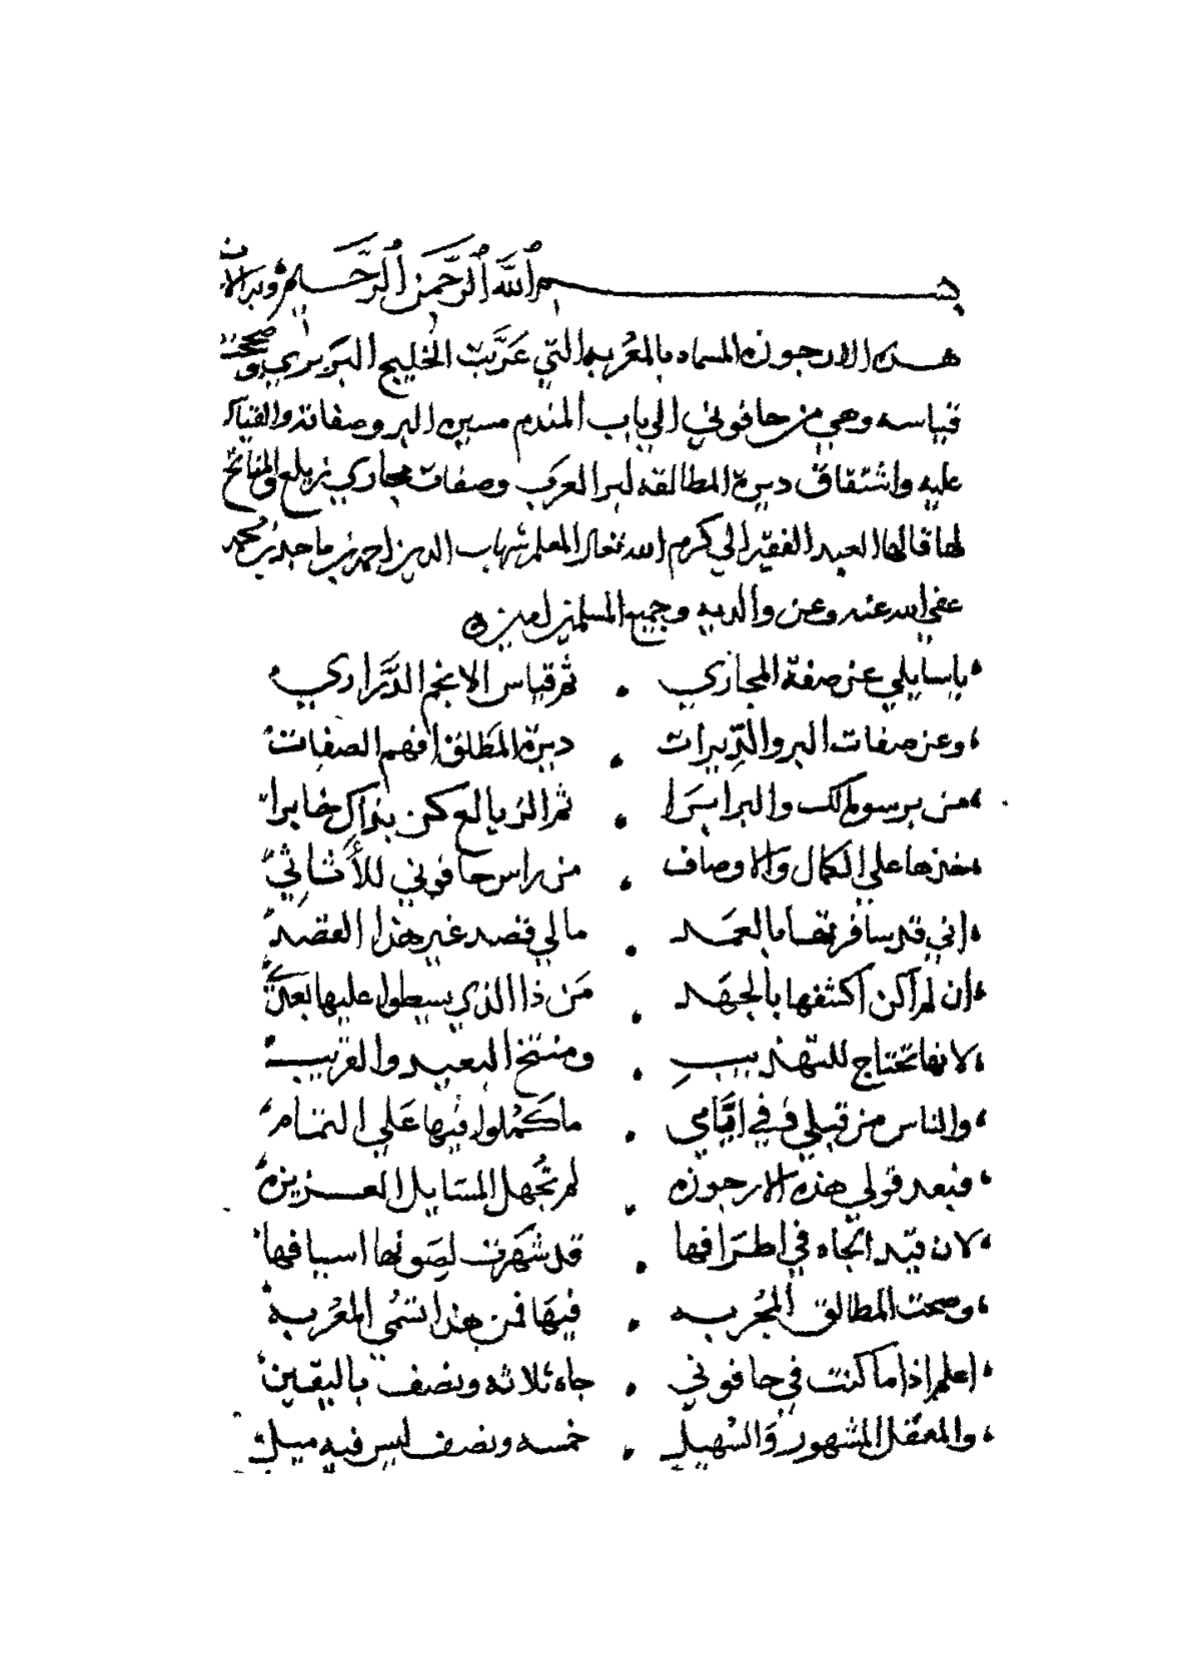 بسم الله الرحمن الرحيم وبه الا
هذه الارجوزه المسماه بالمعربه التي عَرَّبَت الخليج البربري وصححت
قياسه وهي من حافوني الي باب المندم مسيره البر وصفاته والقياس
عليه واشتقاق ديرة المطالقه لبر العرب وصفات مجاري زيلع والمناتخ
لها قالها العبد الفقير الي كرم الله تعالي المعلم شهاب الدين احمد بن ماجد بن محمد
عفي الله عنه وعن والديه وجميع المسلمين امين
يا سايلي عن صفة المجاري . ثم قياس الانجم الدَّراري
وعن صفات البر والدِّيرات . ديرة المَطلق افهم الصفات
من بر سومال والبرابرا . ثم الزيالع كن بذاك خابرا
خذها علي الكمال والاوصاف . من راس حافوني للأثافي
اني قد سافرتها بالعمد . مالي قصد غير هذا القصد
ان لم أكن اكشفها بالجهد . مَن ذا الذي يسطوا عليها بَعدي
لانها تحتاج للتهذيبِ . ومنتخ البعيد والقريب
والناس من قبلي وفي ايَّامي . ما كَمَّلوا فيها عَلي التمام
فبعد قولي هذه الارجوزه . لم تُجهل المسَايل العزيزه
لان قيد اتجاه في اطرَافها . قد شهرت لصَونها اسيافها
وصحت المطالق المجربه . فيهَا فمن هذا تسمى المعْربه
اعلم اذا ما كنت في حافوني . جاه ثلاثه ونصف باليقين
والمعقل المشهور وَالسُهيل . خمسه ونصف ليس فيه ميل